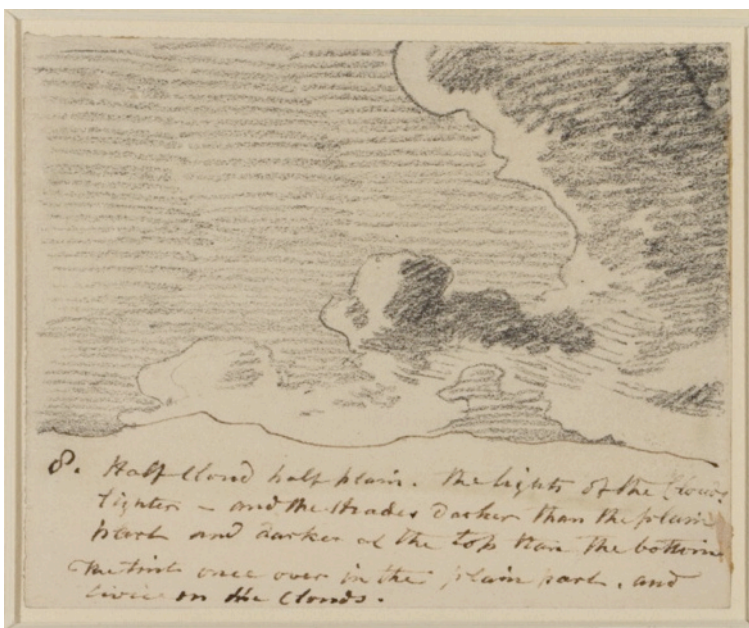 8. Half Cloud half plain. the lights of the Clouds
lighter – and the shades Darker than the plain
part and darker at the top than the bottom
The tint once over in the plain part, and
twice on the Clouds.